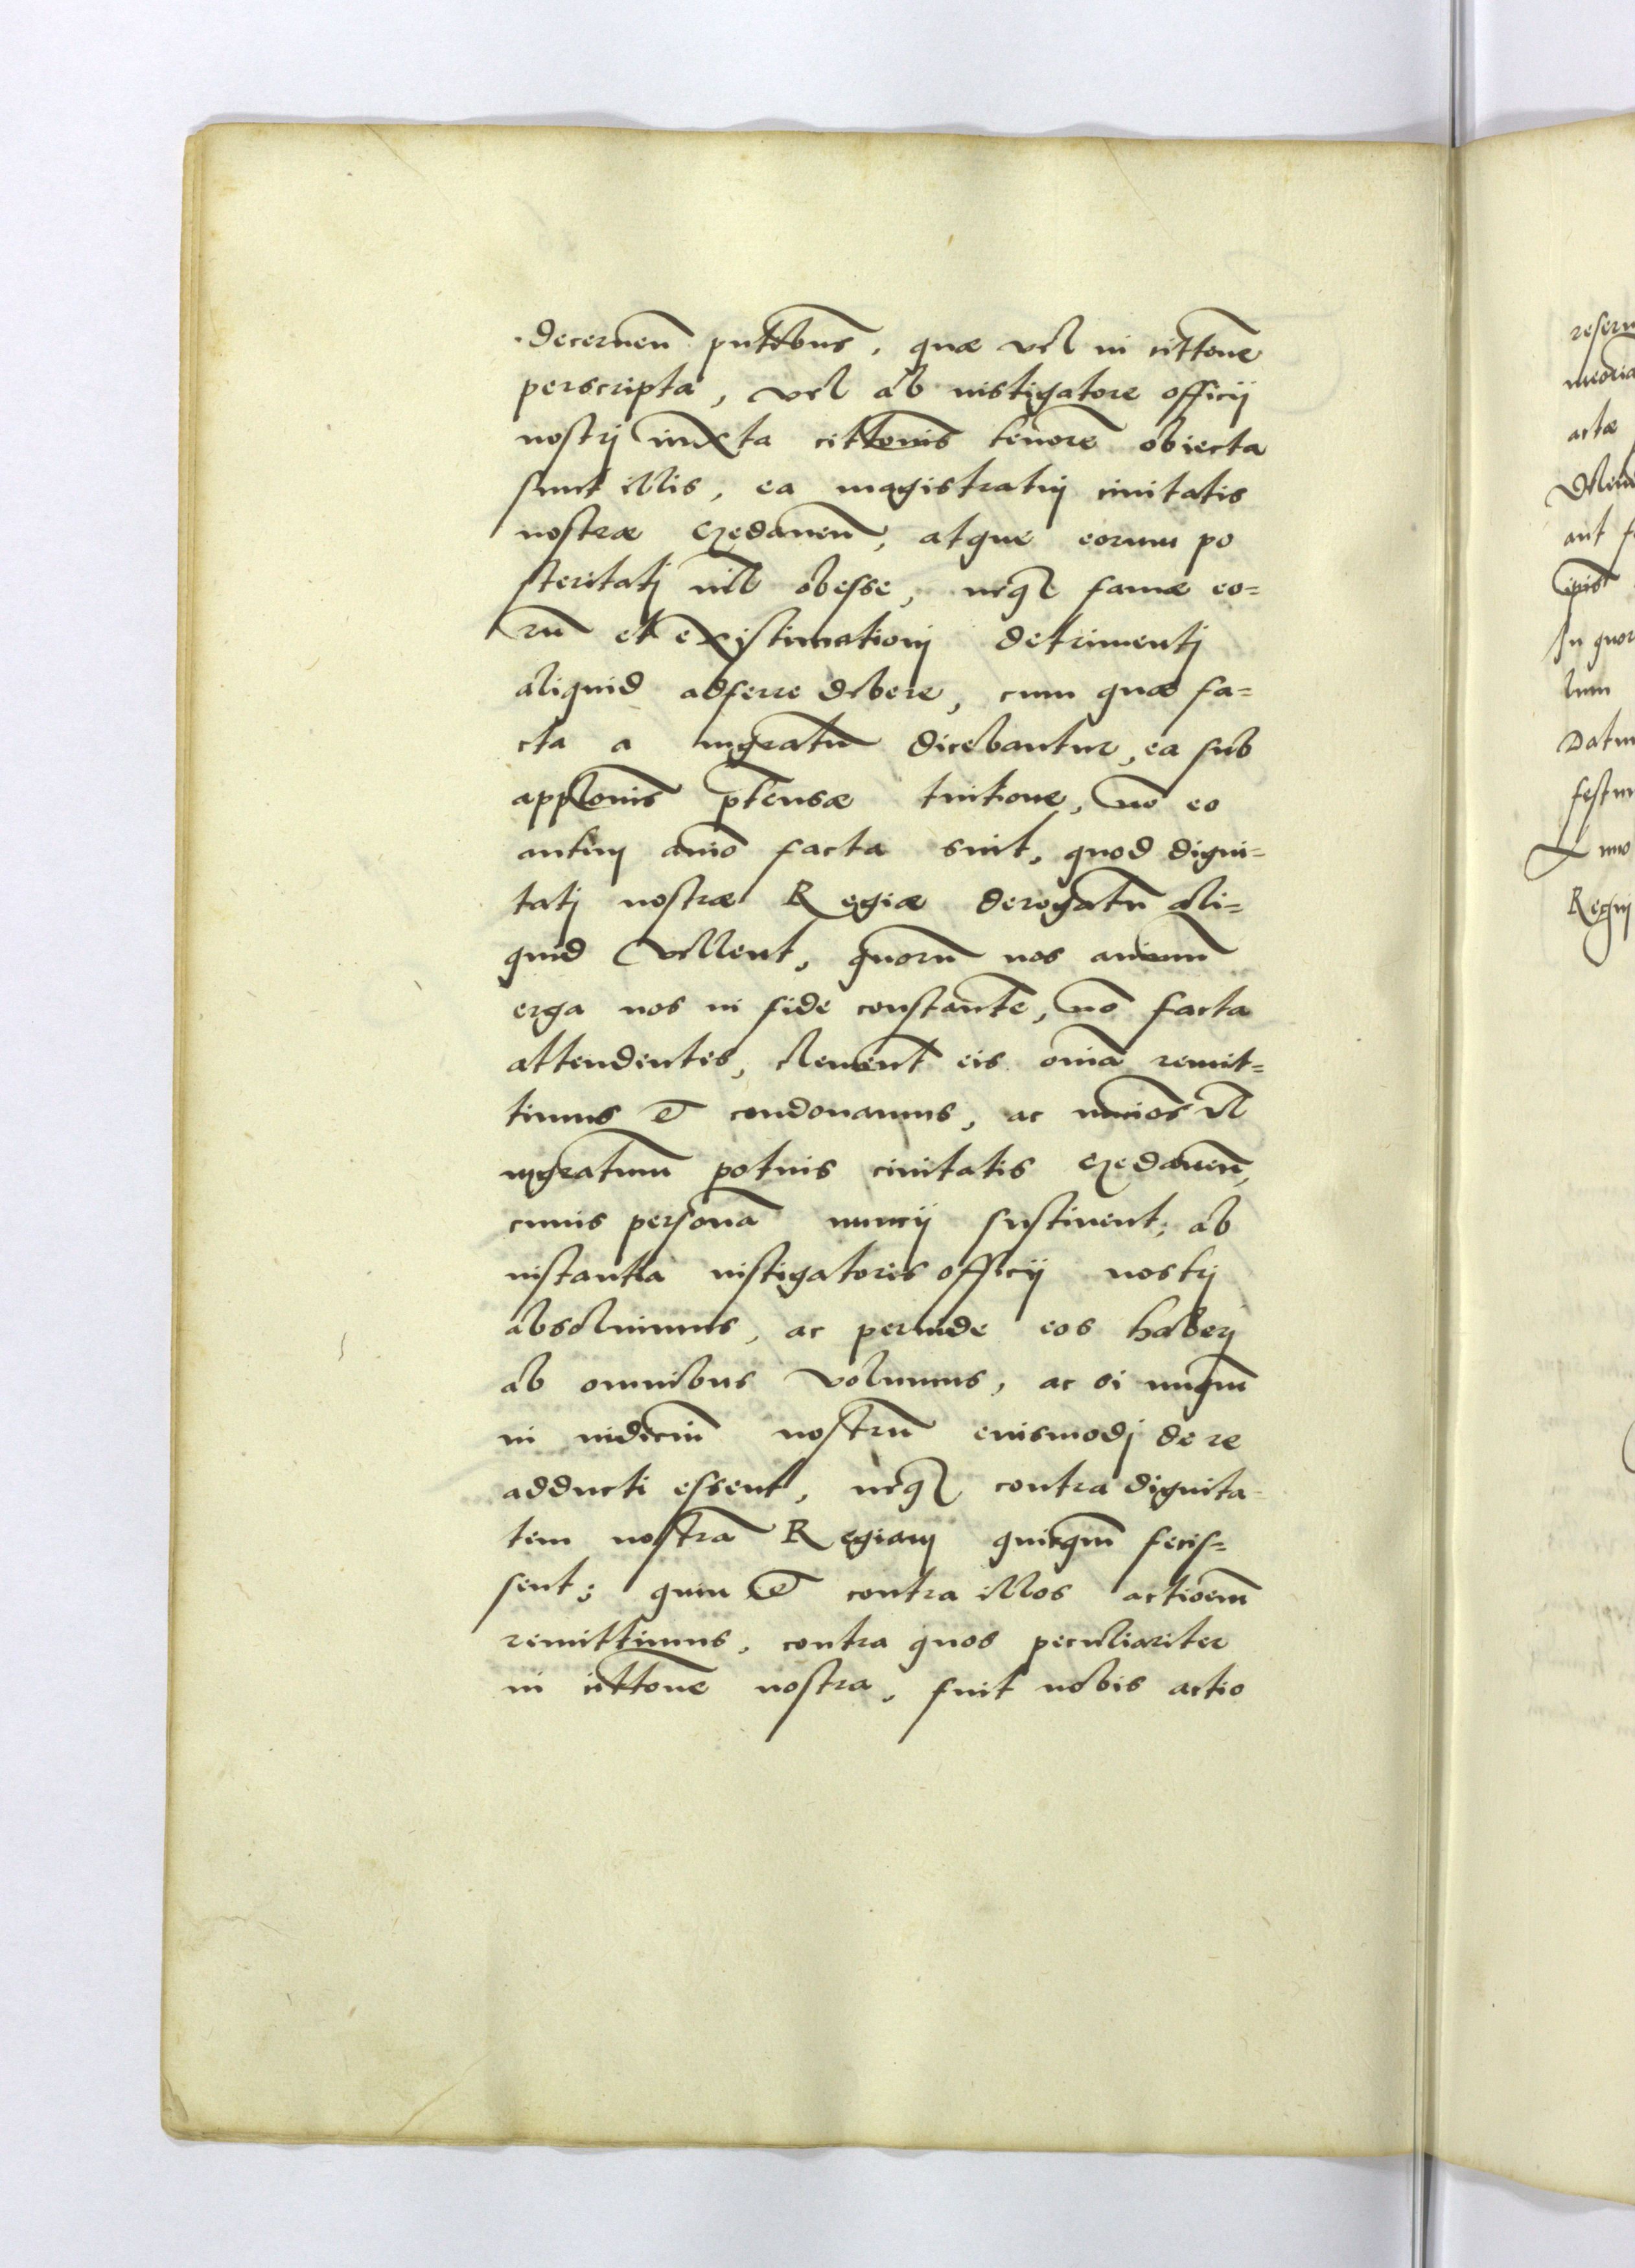 decernen̄ pn̄ttbus, quæ vel in citt̄one
perscripta, vel ab instigatore officij
nostrj iuxta citt̄onis tenorē obiecta
sunt illis, ea magistratuj ciuitatis
nostræ Gedanen̄, atque eorum po
steritatj nil obesse, neqȝ famæ eo=
rū et existimationj detrimentj
aliquid adferre debere, cum quæ fa=
cta a mgratū dicebantur, ea sub
applōnis p̄tensæ tuitione, nō eo
facta sint, quod digni=
tatj nostræ Regiæ derogatū ali=
quid vellent, quorū nos animū
erga nos in fide constantē, nō facta
attendentes, clement̄ eis om̄ia remit=
timus et condonamus, ac nuncios vel
mgratum potius ciuitatis Gedanen̄,
cuius personā nuncij sustinent, ab
instantia instigatoris officij nostrj
absoluimus, ac perinde eos haberj
ab omnibus volumus, ac si nunqm̄
in iudiciū nostrū eiusmodj de re
adducti essent, neqȝ contra dignita=
tem nostrā Regiam quicqm̄ fecis=
sent; quin et contra illos actioem̄
remittimus, contra quos peculiariter
in citt̄one nostra, fuit nobis actio
reseru
artæ
aut f
In quor
lum
Datum
festum
Anno
Regnj